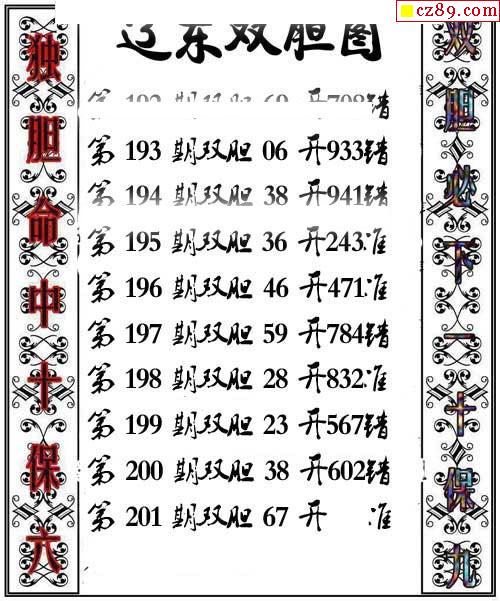 cz89.com
辽东双胆图
第 192 期双胆 69 开708错
第 193 期双胆 06 开933错
第 194 期双胆 38 开941错
第 195 期双胆 36 开243准
第 196 期双胆 46 开471准
第 197 期双胆 59 开784错
第 198 期双胆 28 开832准
第 199 期双胆 23 开567错
第 200 期双胆 38 开602错
第 201 期双胆 67 开 准
独胆命中十保六
双胆必下一十保九